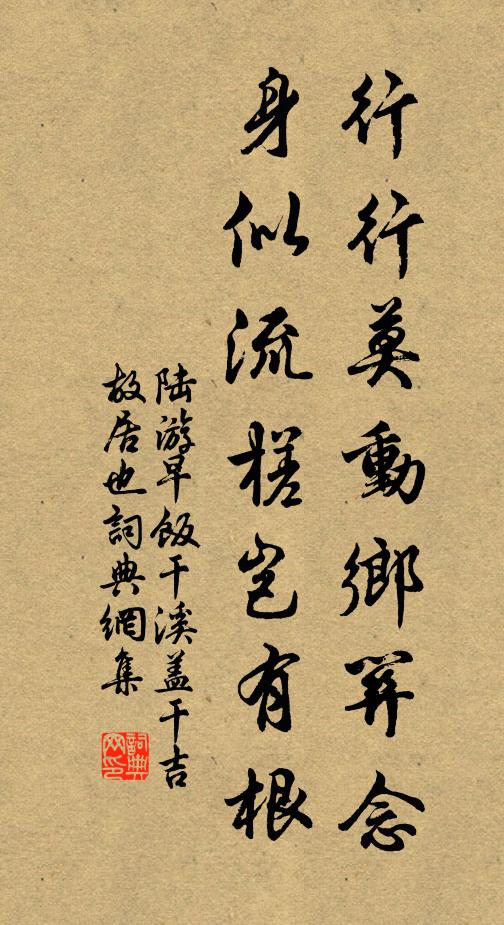 行行莫動鄉關念
身似流槎豈有根
陆游早飯干溪盖干吉
故居也詞典網集
詞典
网印